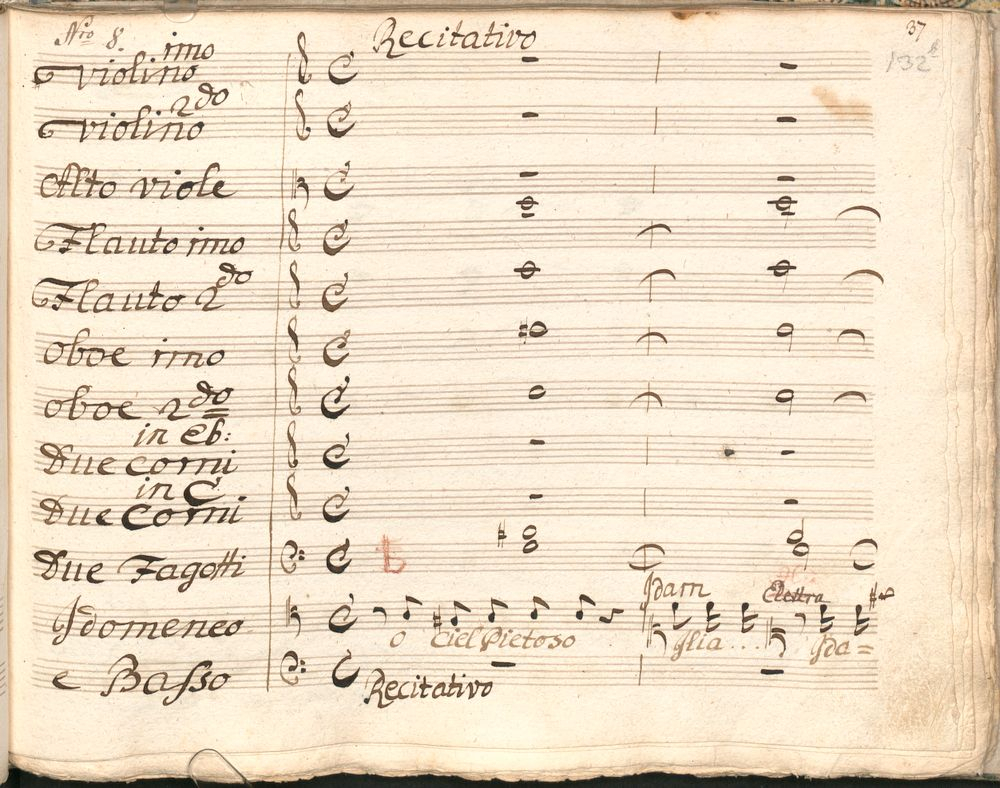 Nro 8. Recitativo 37
132
imo
Violino
2do
Violino
Alto viole
Flauto imo
Flauto 2do
oboe imo
oboe 2do
in Eb:
Due corni
in C
Due Corni
Due Fagotti
Idam Elettra
Idomeneo
o Ciel Pietoso Ilia... Ida=
e Basso
Recitativo